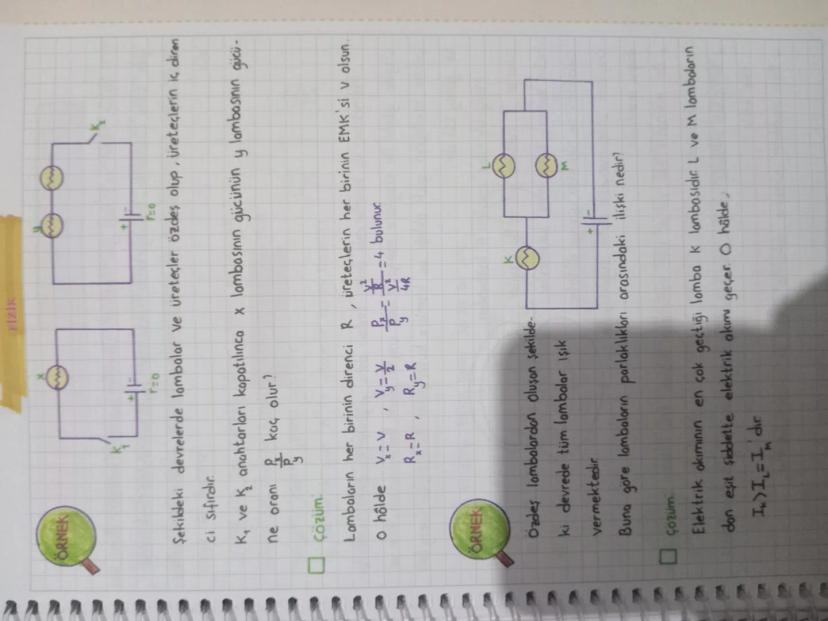 FİZİK
ÖRNEK
x
K₁
+ -
r=0
y
K₂
+ -
r=0
Şekildeki devrelerde lambalar ve üreteçler özdeş olup, üreteçlerin iç diren
ci sıfırdır.
K₁ ve K₂ anahtarları kapatılınca x lambasının gücünün y lambasının gücü-
ne oranı Pₓ/Pᵧ kaç olur?
çözüm
Lambaların her birinin direnci R, üreteçlerin her birinin EMK'si V olsun.
O hâlde Vₓ=V, Vᵧ=V/2 Pₓ/Pᵧ = (V²/R)/(V²/4R) = 4 bulunur.
Rₓ=R, Rᵧ=R
ÖRNEK
K
L
M
+ -
özdeş lambalardan oluşan şekilde-
ki devrede tüm lambalar ışık
vermektedir.
Buna göre lambaların parlaklıkları arasındaki ilişki nedir?
çözüm
Elektrik akımının en çok geçtiği lamba K lambasıdır L ve M lambaların
dan eşit şiddette elektrik akımı geçer. O hâlde,